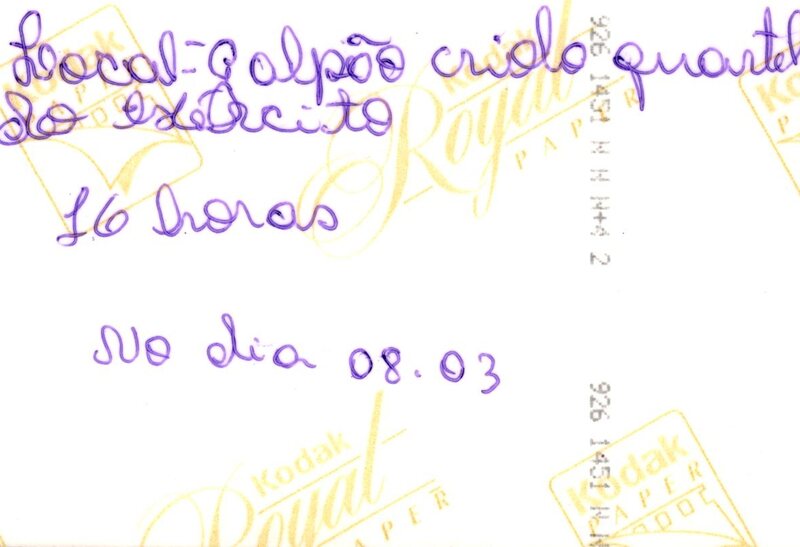 Local-Galpão criolo quartel
do exército
16 horas
No dia 08.03
Kodak
Royal
PAPER
Kodak
PAPER
926 1451 N N N+4 2
926 1451 N N
Kodak
Royal
PAPER
Kodak
PAPER